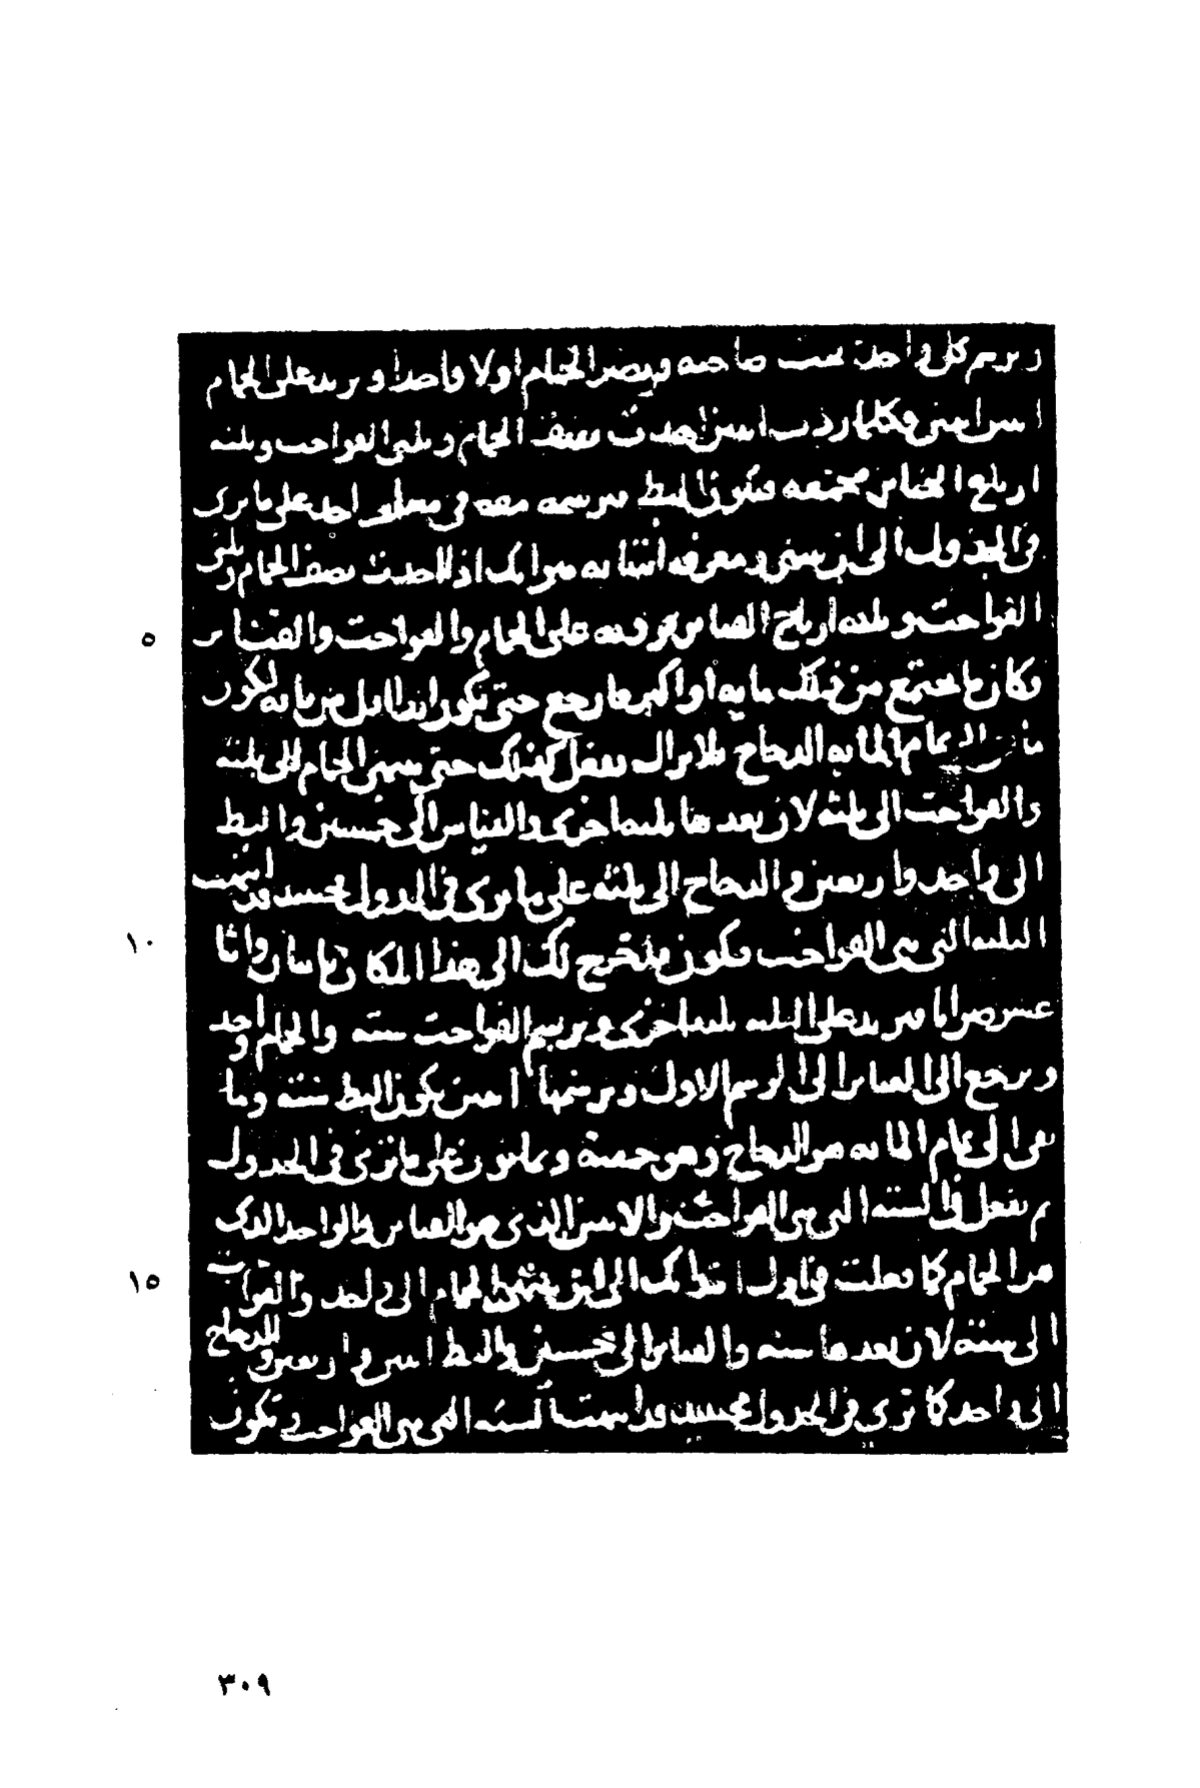 ويرسم كل واحد تحت صاحبه ويصير الحمام اولا واحدا ويريد على الحمام
اثنين اثنين وكلما زدت اثنين اخذت نصف الحمام وثلثي الفواخت وثلثة
ارباع القنابر مجتمعه فيكون البط فيرسمه معه في سطر واحد على ما يرى
في الجدول الى ان يستبين معرفه اثباته من انك اذا اخذت نصف الحمام وثلثي
الفواخت وثلثه ارباع القنابر فزدته على الحمام والفواخت والقنابر
٥
فكان ما يجتمع من ذلك مايه او اكبر فارجع حتى يكون ابدا اقل من مايه ليكون
الى تمام المايه الدجاج فلا يزال تفعل كذلك حتى ينتهي الحمام الى ثلثه
والفواخت الى ثلثه لان بعدها ثلثه اخرى والقنابر الى خمسين والبط
الى واحد واربعين والدجاج الى ثلثه على ما يرى في الجدول فحينئذ قد انتهت
الثلثه التي هي الفواخت فيكون ما يخرج لك الى هذا المكان مايتان واثنا
١٠
عشر صوابا فيريد على الثلثه ثلثه اخرى ويرسم الفواخت سته والحمام واحد
ويرجع الى القنابر الى الرسم الاول ويرسمها اثنين يكون البط سته وما
بقي الى تمام المايه هو الدجاج وهو خمسة وثمانون على ما ترى في الجدول
ثم تفعل في السته التي هي الفواخت والاثنين الذي هو القنابر والواحد الذي
هو الحمام كما فعلت في اول ابتدايك الى ان ينتهي الحمام الى واحد والفواخت
١٥
الى سته لان بعدها سته والقنابر الى خمسين والبط اثنين واربعين والدجاج
الى واحد كما ترى في الجدول فحينئذ قد انتهت السته التي هي الفواخت ويكون
٣٠٩